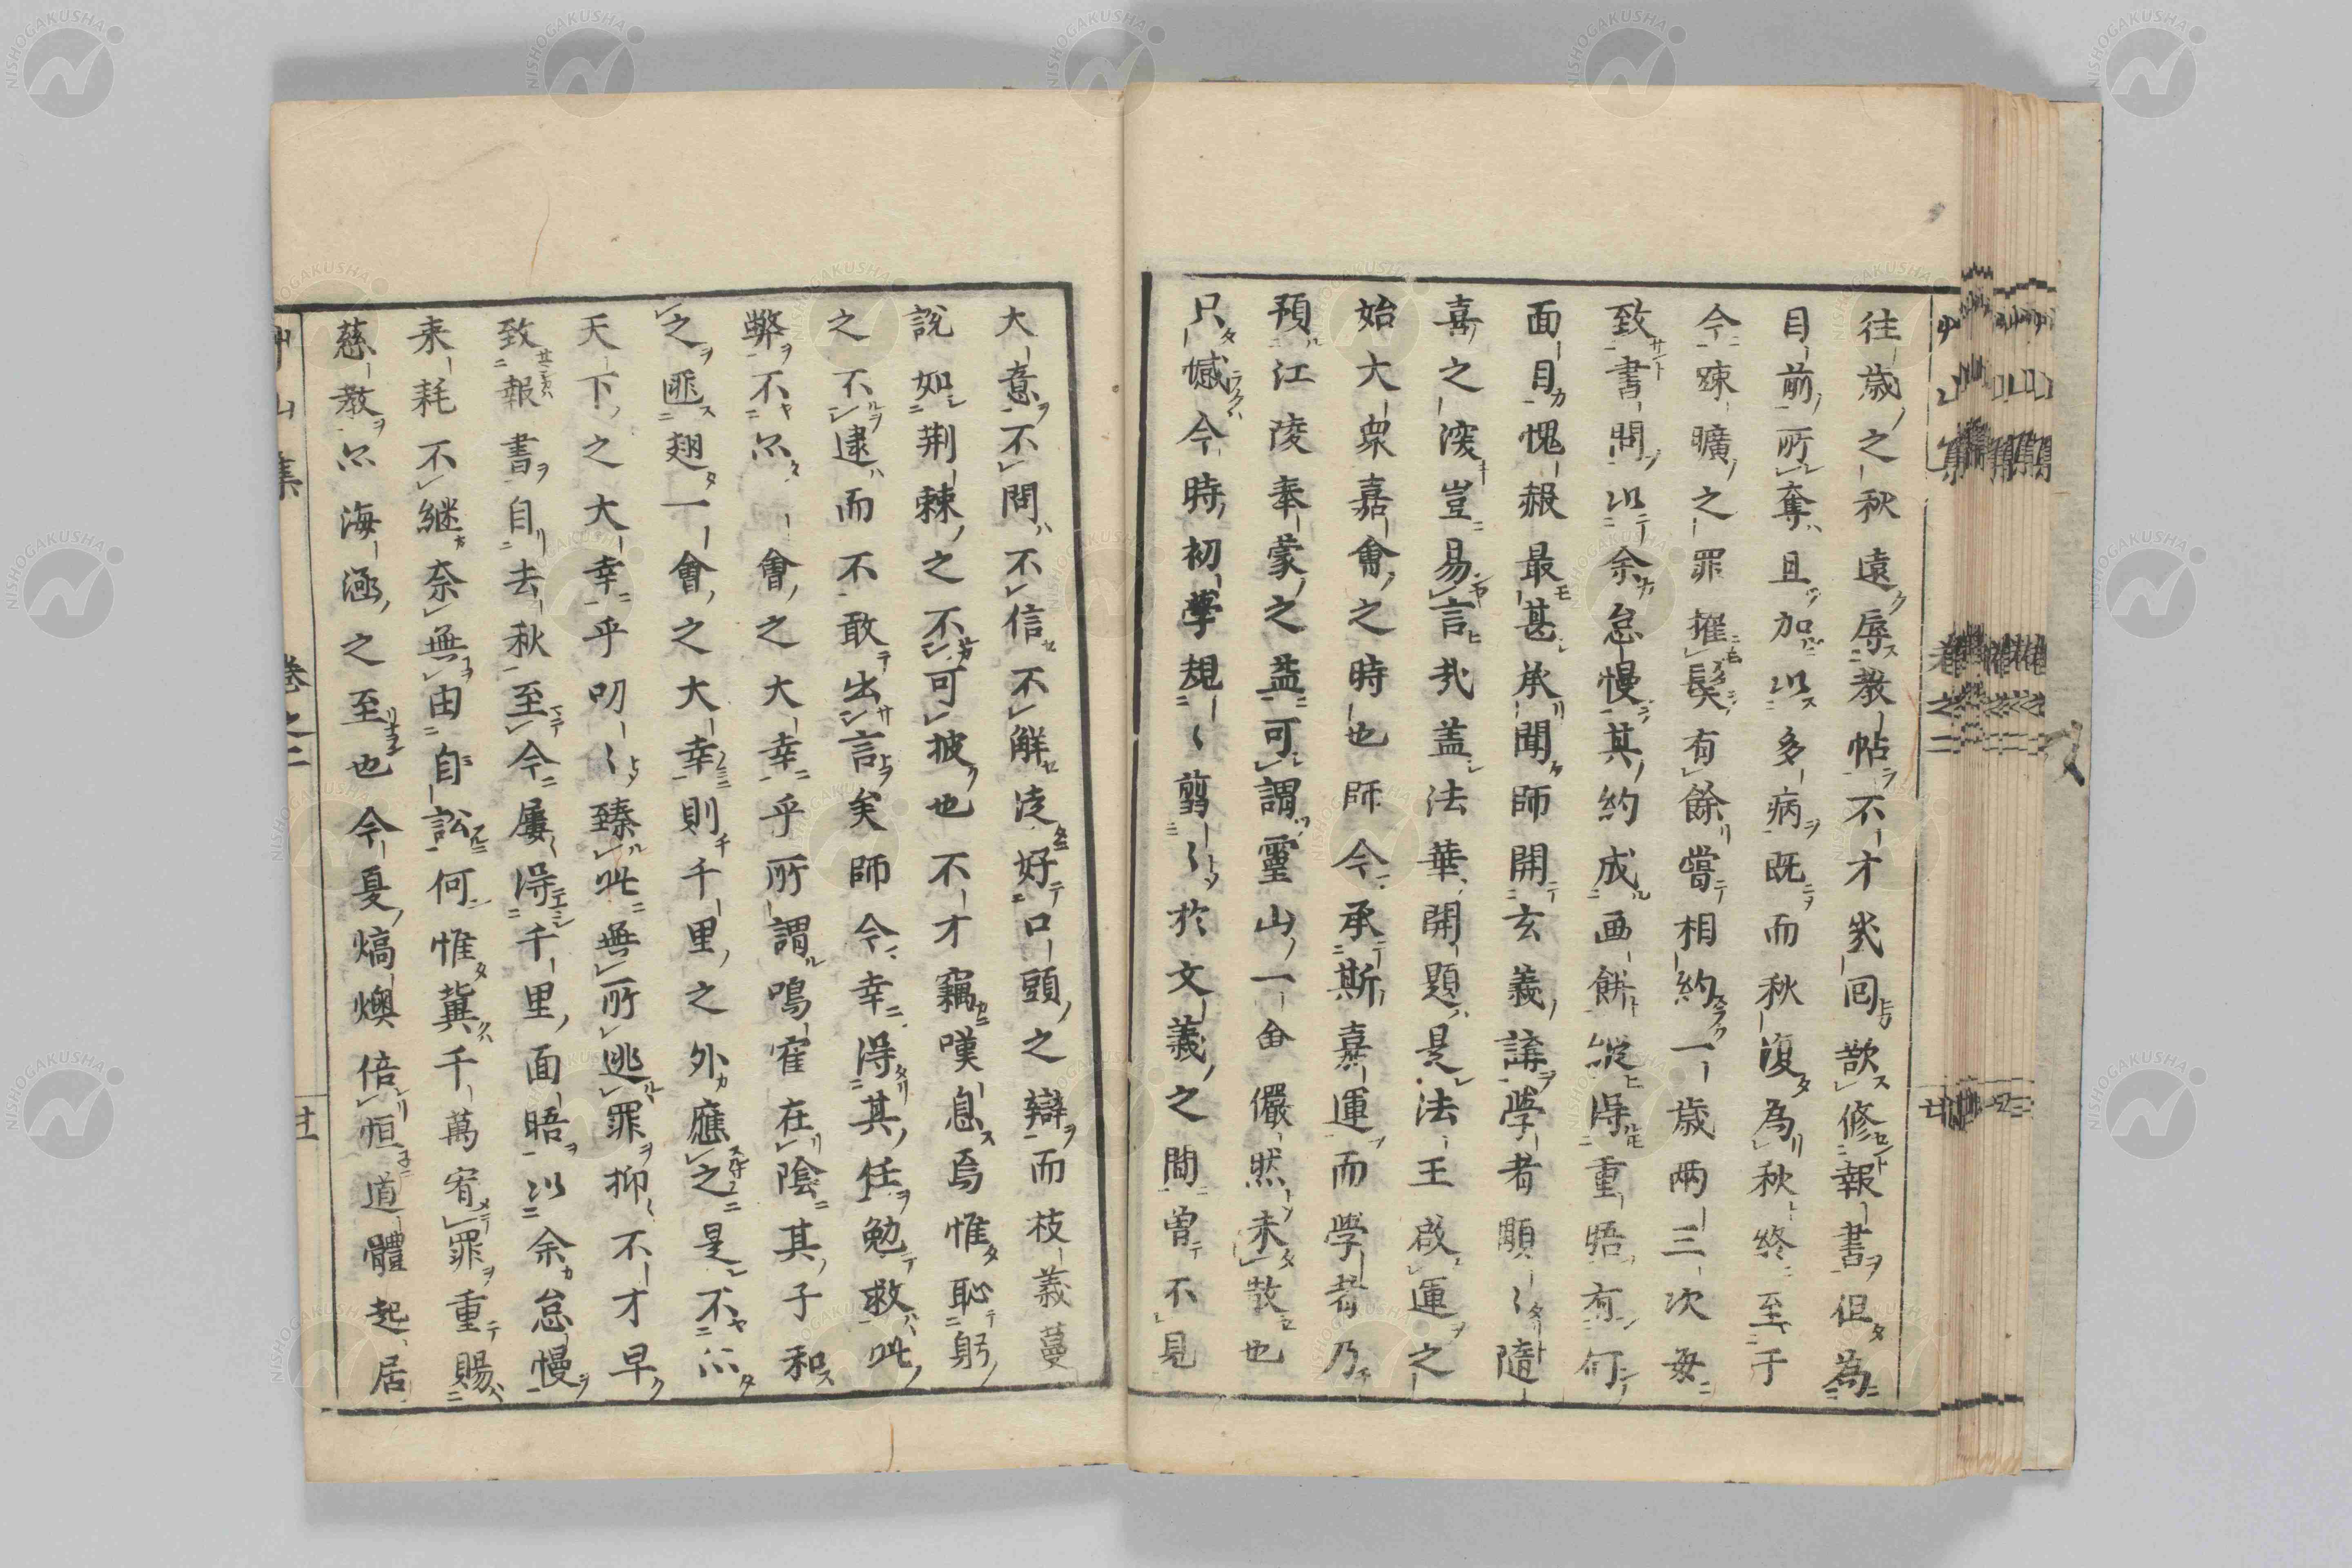 往歳之秋遠辱教帖不才幾回欲修報書但為
目前所奪且加以多病既而秋復為秋終至于
今疎曠之罪擢髮有餘嘗相約一歳兩三次毎
致書問以余怠慢其約成画餅縱得重晤有何
面目愧赧最甚承聞師開玄義講學者顒〻隨
喜之深豈易言哉盖法華開題是法王啟運之
始大衆嘉會之時也師今承斯嘉運而學者乃
預江陵奉蒙之益可謂靈山一會儼然未散也
只憾今時初學規〻剪〻於文義之間曽不見
大意不問不信不解泛好口頭之辯而枝義蔓
說如荆棘之不可披也不才竊嘆息焉惟恥躬
之不逮而不敢出言矣師今幸得其任勉救此
弊不尒一會之大幸乎所謂鳴寉在陰其子和
之匪翅一會之大幸則千里之外應之是不尒
天下之大幸乎叨〻臻此無所逃罪抑不才早
致報書自去秋至今屢得千里面晤以余怠慢
来耗不継奈無由自訟何惟冀千萬宥罪重賜
慈教尒海涵之至也今夏熇燠倍恒道體起居
艸山集 卷之二 廿一